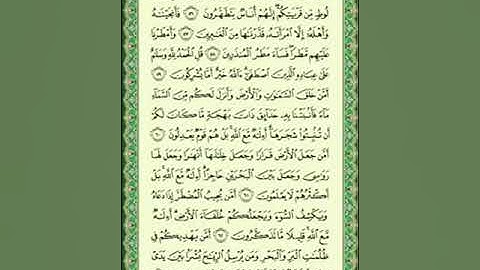 لُوطٍ مِّن قَرْيَتِكُمْ إِنَّهُمْ أُنَاسٌ يَتَطَهَّرُونَ ٥٦ فَأَنجَيْنَٰهُ
وَأَهْلَهُۥٓ إِلَّا ٱمْرَأَتَهُۥ قَدَّرْنَٰهَا مِنَ ٱلْغَٰبِرِينَ ٥٧ وَأَمْطَرْنَا
عَلَيْهِم مَّطَرًا فَسَآءَ مَطَرُ ٱلْمُنذَرِينَ ٥٨ قُلِ ٱلْحَمْدُ لِلَّهِ وَسَلَٰمٌ
عَلَىٰ عِبَادِهِ ٱلَّذِينَ ٱصْطَفَىٰٓ ءَآللَّهُ خَيْرٌ أَمَّا يُشْرِكُونَ ٥٩
أَمَّنْ خَلَقَ ٱلسَّمَٰوَٰتِ وَٱلْأَرْضَ وَأَنزَلَ لَكُم مِّنَ ٱلسَّمَآءِ
مَآءً فَأَنۢبَتْنَا بِهِۦ حَدَآئِقَ ذَاتَ بَهْجَةٍ مَّا كَانَ لَكُمْ
أَن تُنۢبِتُوا۟ شَجَرَهَآ أَءِلَٰهٌ مَّعَ ٱللَّهِ بَلْ هُمْ قَوْمٌ يَعْدِلُونَ ٦٠
أَمَّن جَعَلَ ٱلْأَرْضَ قَرَارًا وَجَعَلَ خِلَٰلَهَآ أَنْهَٰرًا وَجَعَلَ لَهَا
رَوَٰسِيَ وَجَعَلَ بَيْنَ ٱلْبَحْرَيْنِ حَاجِزًا أَءِلَٰهٌ مَّعَ ٱللَّهِ بَلْ
أَكْثَرُهُمْ لَا يَعْلَمُونَ ٦١ أَمَّن يُجِيبُ ٱلْمُضْطَرَّ إِذَا دَعَاهُ
وَيَكْشِفُ ٱلسُّوٓءَ وَيَجْعَلُكُمْ خُلَفَآءَ ٱلْأَرْضِ أَءِلَٰهٌ
مَّعَ ٱللَّهِ قَلِيلًا مَّا تَذَكَّرُونَ ٦٢ أَمَّن يَهْدِيكُمْ فِي
ظُلُمَٰتِ ٱلْبَرِّ وَٱلْبَحْرِ وَمَن يُرْسِلُ ٱلرِّيَٰحَ بُشْرًۢا بَيْنَ يَدَيْ